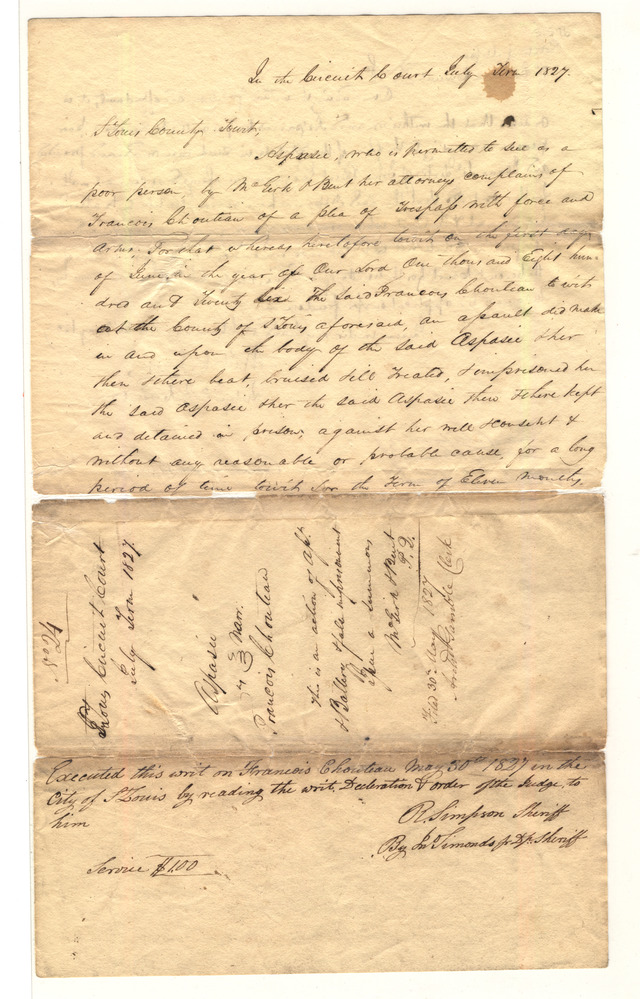 In the Circuit Court July Term 1827.
St Louis County Towit,
Aspasie, who is permitted to sue as a
poor person by McGirk & Bent her attorneys complains of
Francois Chouteau of a plea of Trespass with force and
arms, For that whereas heretofore towit on the first day
of June in the year of Our Lord One thousand Eight hun-
dred and Twenty Six The said Francois Chouteau to wit
at the County of St Louis aforesaid, an assault did make
in and upon th body of th said Aspasie & her
then & there beat, bruised & ill treated, & imprisoned her
the said Aspasie & her th said Aspasie then & there kept
and detained in prison, against her will & consent &
without any reasonable or probable cause, for a long
period of time towit for the Term of Eleven Months,
No 24
St Louis Circuit Court
July Term 1827.
Aspasie
vs Narr.
Francois Chouteau
This is an action of Asst
& Battery & false imprisonment
Issue a Summons
McGirk & Bent
P. Q.
Filed 30th May 1827
Archd Gamble Clerk
Executed this writ on Francois Chouteau May 30th 1827 in the
City of St Louis by reading the writ, Decleration & order of the Judge, to
him
R. Simpson Sheriff
By Jno Simonds jr Dp. Sheriff
Service $1.00